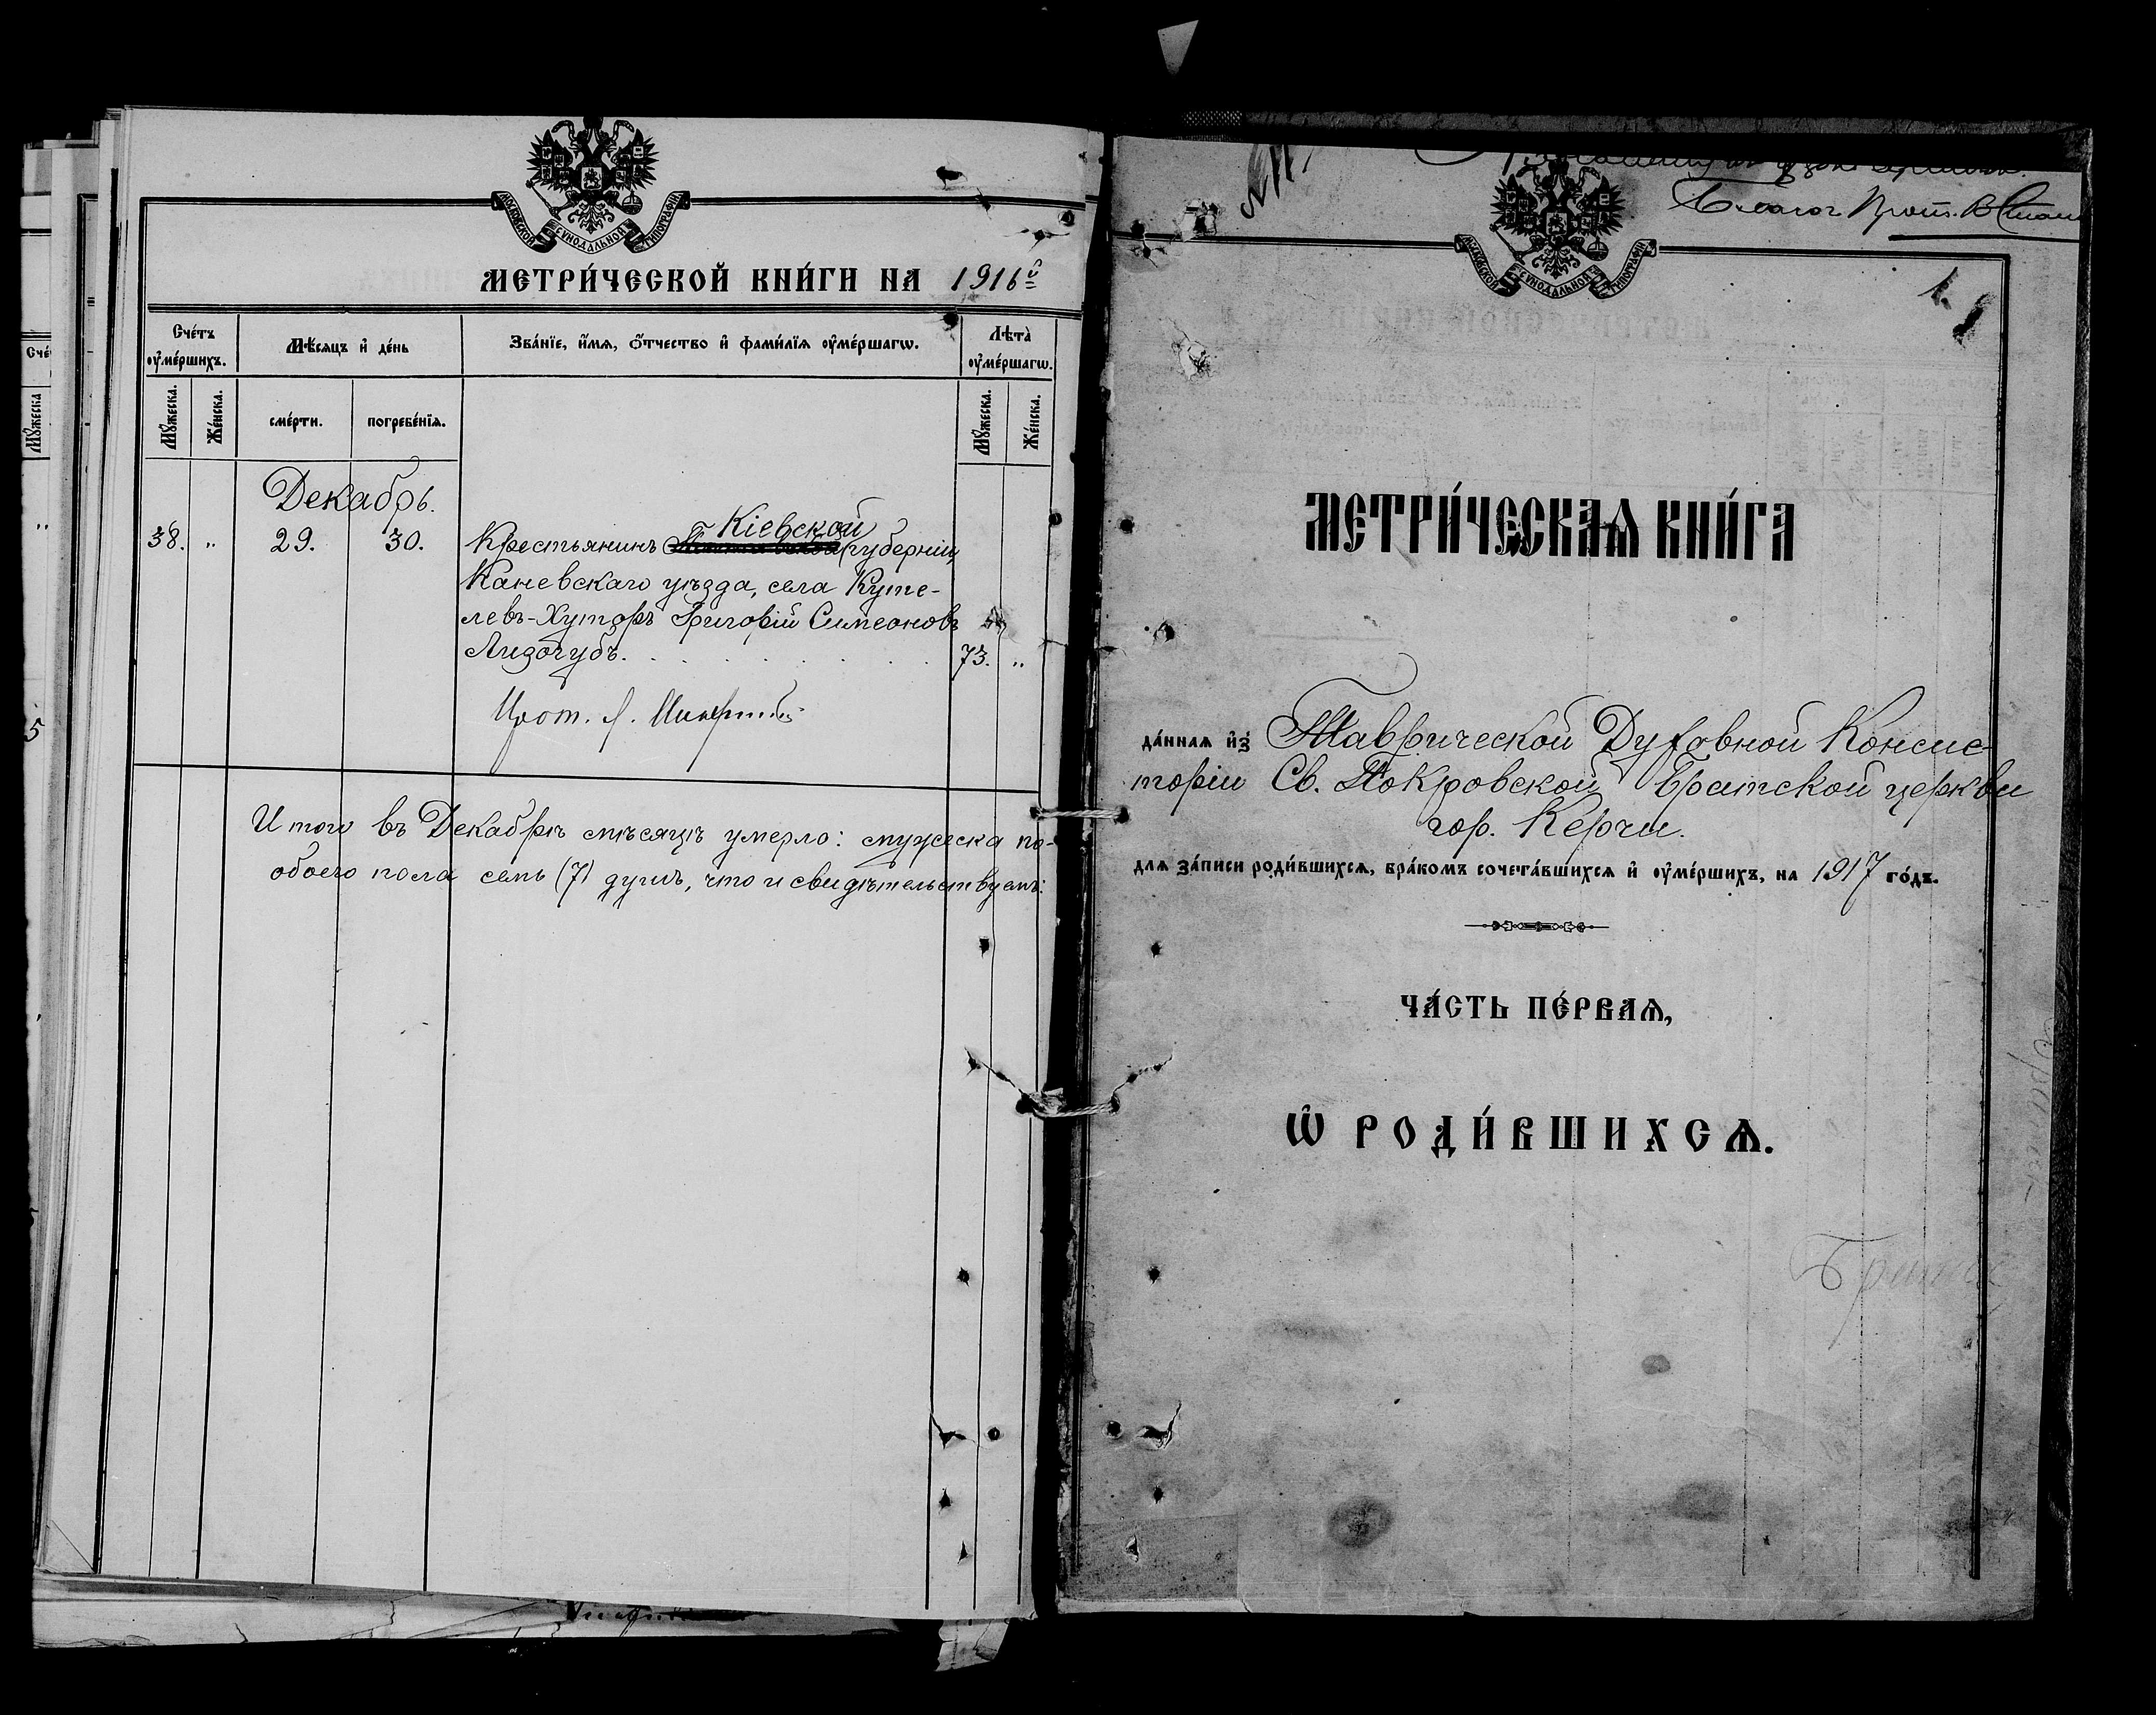 МОСКОВСКОЙ СѴНОДАЛЬНОЙ ТИПОГРАФІИ
МЕТРИ́ЧЕСКОЙ КНИ́ГИ НА 1916й
Сче́тъ ᲂу҆ме́ршихъ.
Мѣ́сяцъ и҆ де́нь
Зва́нїе, и҆́мя, ѻ҆́тчество и҆ фами́лїя ᲂу҆ме́ршагѡ.
Лѣта̀ ᲂу҆ме́ршагѡ.
Мꙋ́жеска. Же́нска.
сме́рти. погребе́нїя.
Мꙋ́жеска. Же́нска.
Декабрь.
38. „ 29. 30. Крестьянинъ Кіевской губерніи,
Каневскаго уѣзда, села Куте-
левъ-Хуторъ Григорій Симеоновъ
Лизогубъ. 73. „
Прот.
Итого въ Декабрѣ мѣсяцѣ умерло: мужеска по-
обоего пола семь (7) душъ, что и свидѣтельствуемъ:
Благоч. Прот. В.
МОСКОВСКОЙ СѴНОДАЛЬНОЙ ТИПОГРАФІИ
1.
МЕТРИ́ЧЕСКАѦ КНИ́ГА
да́ннаѧ и҆з̾ Таврической Духовной Консис-
торіи Св. Покровской Братской церкви
гор. Керчи.
для за́писи роди́вшихсѧ, бра́комъ сочета́вшихсѧ и҆ ᲂу҆ме́ршихъ, на 1917 го́дъ.
ЧА́СТЬ ПЕ́РВАѦ,
Ѽ РОДИ́ВШИХСѦ.